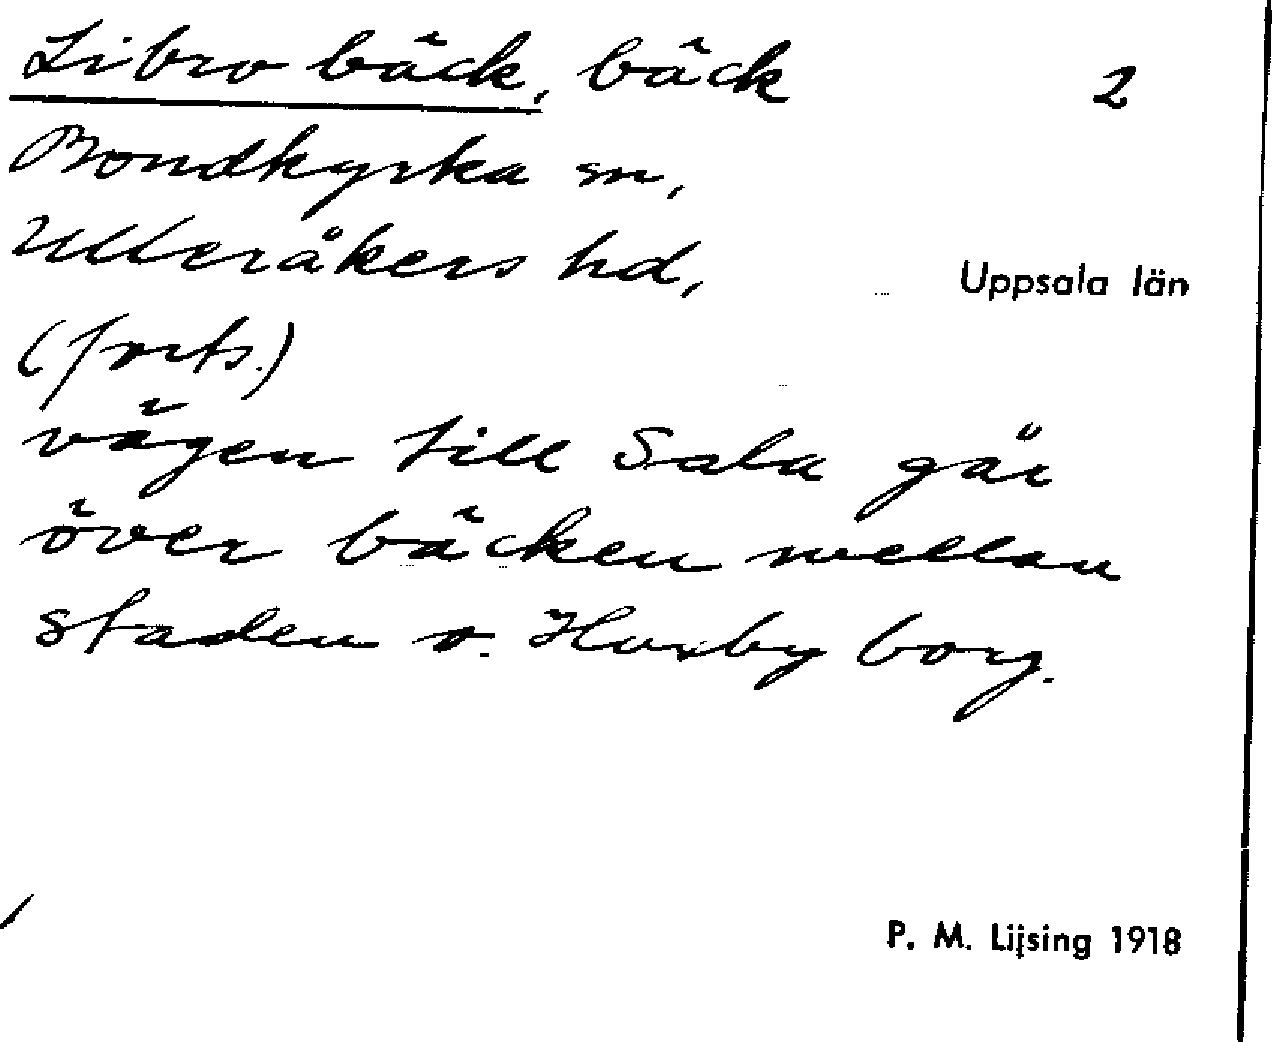 Libro bäck, bäck 2
Bondkyrka sn,
Ulleråkers hd, Uppsala län
(forts.)
vägen till Sala går
över bäcken mellan
staden o. Husby borg.
P. M. Lijsing 1918